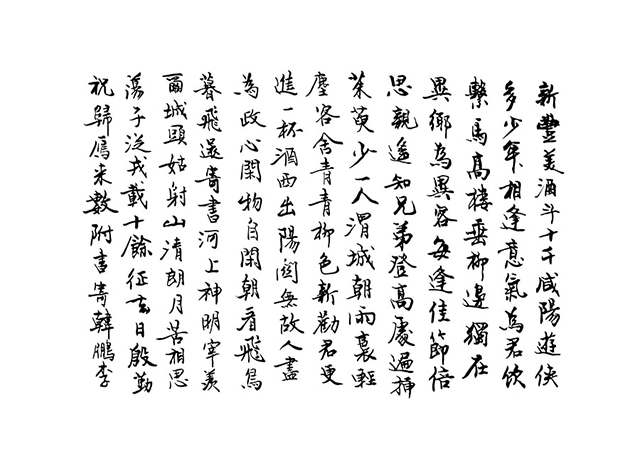 新豐美酒斗十千咸陽遊俠
多少年相逢意氣為君飲
繫馬高樓垂柳邊獨在
異鄉為異客每逢佳節倍
思親遙知兄弟登高處遍插
茱萸少一人渭城朝雨裛輕
塵客舍青青柳色新勸君更
進一杯酒西出陽關無故人盡
為政心閑物自閑朝看飛鳥
暮飛還寄書河上神明宰羨
爾城頭姑射山清朗月苦相思
蕩子泛戎載十餘征去日殷勤
祝歸雁來數附書寄韓鵬李